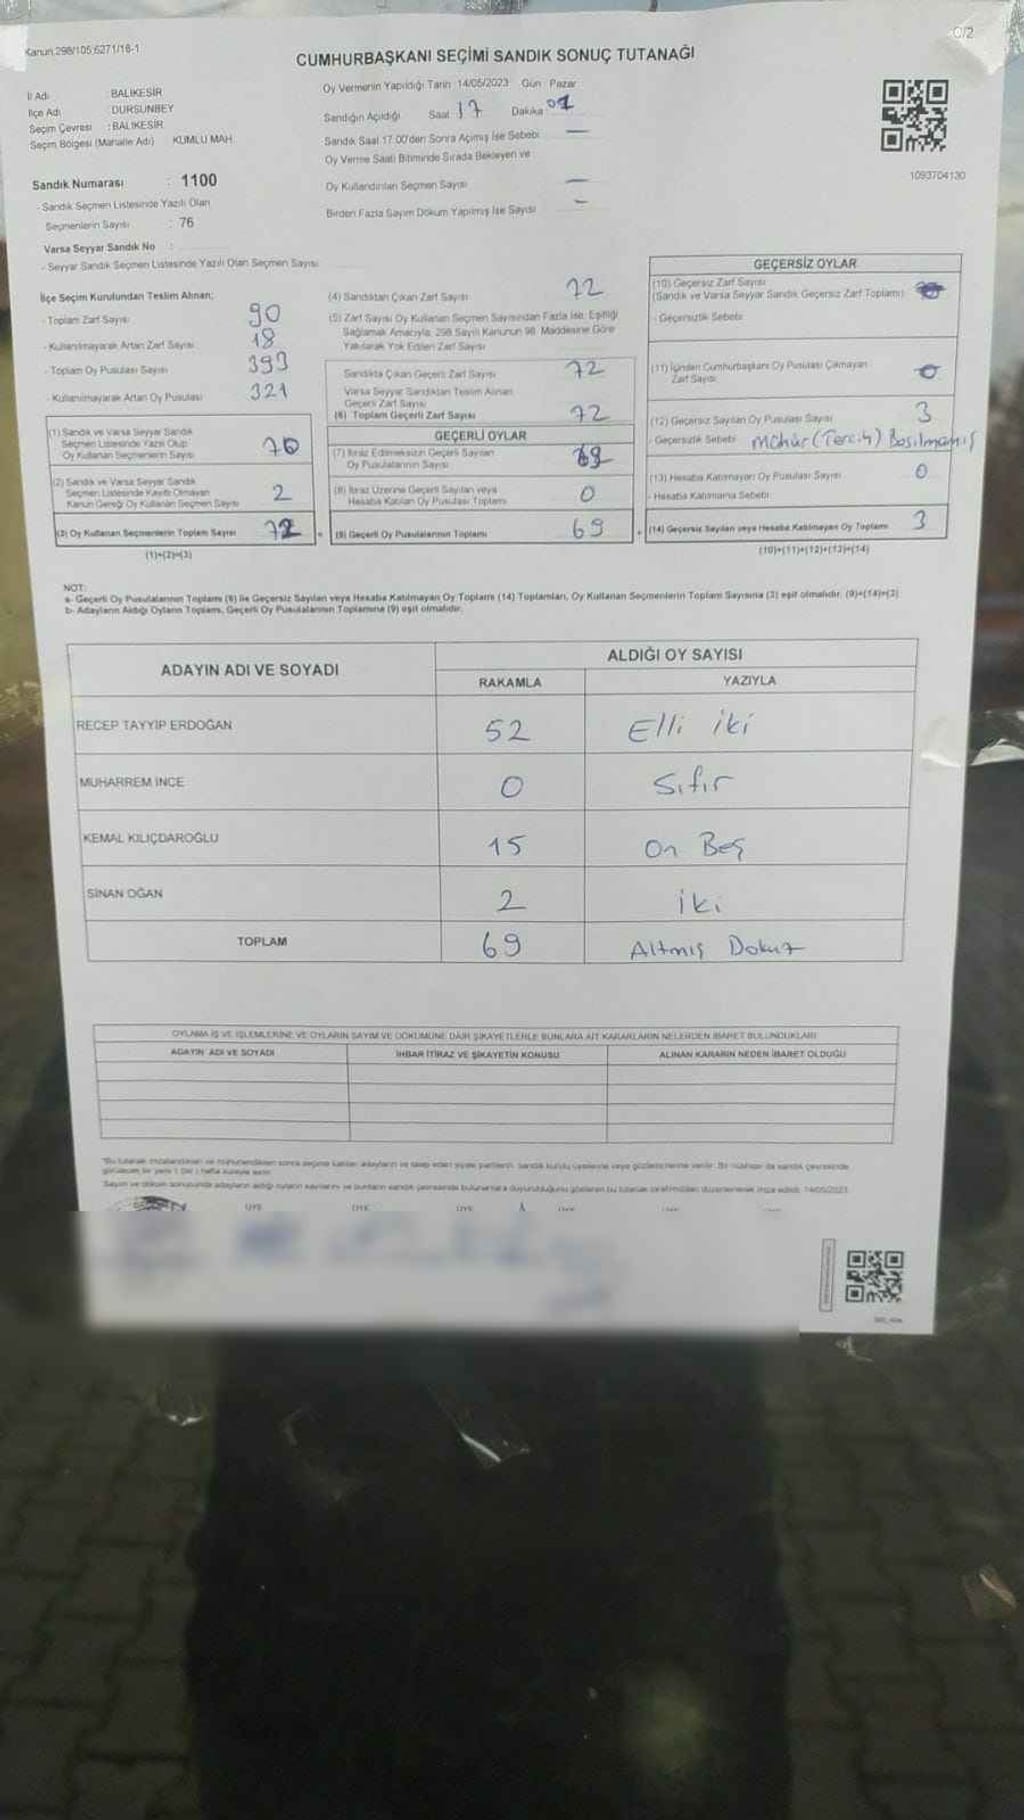 Kanun 298/105;6271/16-1
C/2
CUMHURBAŞKANI SEÇİMİ SANDIK SONUÇ TUTANAĞI
İl Adı : BALIKESİR
İlçe Adı : DURSUNBEY
Seçim Çevresi : BALIKESİR
Seçim Bölgesi (Mahalle Adı) KUMLU MAH.
Sandık Numarası : 1100
- Sandık Seçmen Listesinde Yazılı Olan
Seçmenlerin Sayısı : 76
Varsa Seyyar Sandık No :
- Seyyar Sandık Seçmen Listesinde Yazılı Olan Seçmen Sayısı
Oy Vermenin Yapıldığı Tarih 14/05/2023 Gün Pazar
Sandığın Açıldığı Saat 17 Dakika 01
Sandık Saat 17.00'den Sonra Açılmış İse Sebebi —
Oy Verme Saati Bitiminde Sırada Bekleyen ve
Oy Kullandırılan Seçmen Sayısı —
Birden Fazla Sayım Döküm Yapılmış İse Sayısı -
1093704130
İlçe Seçim Kurulundan Teslim Alınan;
- Toplam Zarf Sayısı 90
- Kullanılmayarak Artan Zarf Sayısı 18
- Toplam Oy Pusulası Sayısı 393
- Kullanılmayarak Artan Oy Pusulası 321
(1) Sandık ve Varsa Seyyar Sandık
Seçmen Listesinde Yazılı Olup
Oy Kullanan Seçmenlerin Sayısı 70
(2) Sandık ve Varsa Seyyar Sandık
Seçmen Listesinde Kayıtlı Olmayan
Kanun Gereği Oy Kullanan Seçmen Sayısı 2
(3) Oy Kullanan Seçmenlerin Toplam Sayısı 72
(1)+(2)=(3)
(4) Sandıktan Çıkan Zarf Sayısı 72
(5) Zarf Sayısı Oy Kullanan Seçmen Sayısından Fazla İse, Eşitliği
Sağlamak Amacıyla, 298 Sayılı Kanunun 98. Maddesine Göre
Yakılarak Yok Edilen Zarf Sayısı
Sandıkta Çıkan Geçerli Zarf Sayısı 72
Varsa Seyyar Sandıktan Teslim Alınan
Geçerli Zarf Sayısı
(6) Toplam Geçerli Zarf Sayısı 72
GEÇERLİ OYLAR
(7) İtiraz Edilmeksizin Geçerli Sayılan
Oy Pusulalarının Sayısı 69
(8) İtiraz Üzerine Geçerli Sayılan veya
Hesaba Katılan Oy Pusulası Toplamı 0
(9) Geçerli Oy Pusulalarının Toplamı 69
GEÇERSİZ OYLAR
(10) Geçersiz Zarf Sayısı
(Sandık ve Varsa Seyyar Sandık Geçersiz Zarf Toplamı)
- Geçersizlik Sebebi
(11) İçinden Cumhurbaşkanı Oy Pusulası Çıkmayan
Zarf Sayısı 0
(12) Geçersiz Sayılan Oy Pusulası Sayısı 3
- Geçersizlik Sebebi Mühür (Tercih) Basılmamış
(13) Hesaba Katılmayan Oy Pusulası Sayısı 0
- Hesaba Katılmama Sebebi
(14) Geçersiz Sayılan veya Hesaba Katılmayan Oy Toplamı 3
(10)+(11)+(12)+(13)=(14)
NOT:
a- Geçerli Oy Pusulalarının Toplamı (9) ile Geçersiz Sayılan veya Hesaba Katılmayan Oy Toplamı (14) Toplamları, Oy Kullanan Seçmenlerin Toplam Sayısına (3) eşit olmalıdır. (9)+(14)=(3)
b- Adayların Aldığı Oyların Toplamı, Geçerli Oy Pusulalarının Toplamına (9) eşit olmalıdır.
ADAYIN ADI VE SOYADI ALDIĞI OY SAYISI
RAKAMLA YAZIYLA
RECEP TAYYİP ERDOĞAN 52 Elli iki
MUHARREM İNCE 0 Sıfır
KEMAL KILIÇDAROĞLU 15 On Beş
SİNAN OĞAN 2 iki
TOPLAM 69 Altmış Dokuz
OYLAMA İŞ VE İŞLEMLERİNE VE OYLARIN SAYIM VE DÖKÜMÜNE DAİR ŞİKAYETLERLE BUNLARA AİT KARARLARIN NELERDEN İBARET BULUNDUKLARI
ADAYIN ADI VE SOYADI İHBAR İTİRAZ VE ŞİKAYETİN KONUSU ALINAN KARARIN NEDEN İBARET OLDUĞU
ÜYE ÜYE ÜYE